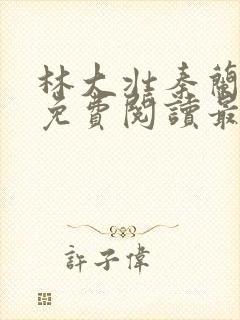 林大壯秦蘭
免費閱讀最
許子偉